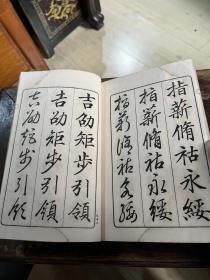 指薪脩祜永綏
指薪脩祜永綏
指薪脩祜永綏
吉劭矩步引領
吉劭矩步引領
吉劭矩步引領